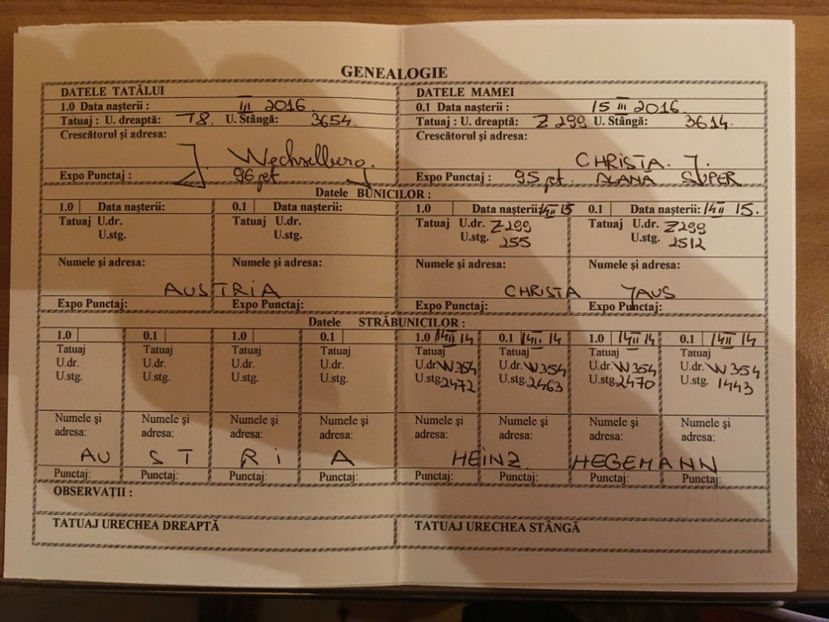 GENEALOGIE
DATELE TATĂLUI
1.0 Data nașterii : III 2016.
Tatuaj : U. dreaptă: T8. U. Stângă: 3654.
Crescătorul și adresa:
J. Wechselberg.
Expo Punctaj : 96 pt
DATELE MAMEI
0.1 Data nașterii : 15 III 2016.
Tatuaj : U. dreaptă: Z 299 U. Stângă: 3614.
Crescătorul și adresa:
CHRISTA. J.
Expo Punctaj : 95 pt. BLANĂ SUPER
Datele BUNICILOR :
1.0 Data nașterii: 0.1 Data nașterii: 1.0 Data nașterii: 14 II 15 0.1 Data nașterii: 14 II 15.
Tatuaj U.dr. Tatuaj U.dr. Tatuaj U.dr. Z299 Tatuaj U.dr. Z299
U.stg. U.stg. U.stg. 255 U.stg. 2512
Numele și adresa: Numele și adresa: Numele și adresa: Numele și adresa:
AUSTRIA CHRISTA JAUS
Expo Punctaj: Expo Punctaj: Expo Punctaj: Expo Punctaj:
Datele STRĂBUNICILOR :
1.0 0.1 1.0 0.1 1.0 14 II 14 0.1 14 II 14 1.0 14 II 14 0.1 14 II 14
Tatuaj Tatuaj Tatuaj Tatuaj Tatuaj Tatuaj Tatuaj Tatuaj
U.dr. U.dr. U.dr. U.dr. U.dr. W354 U.dr. W354 U.dr. W354 U.dr. W354
U.stg. U.stg. U.stg. U.stg. U.stg. 2472 U.stg. 2463 U.stg. 2470 U.stg. 1443
Numele și Numele și Numele și Numele și Numele și Numele și Numele și Numele și
adresa: adresa: adresa: adresa: adresa: adresa: adresa: adresa:
AU S T R i A HEINZ HEGEMANN
Punctaj: Punctaj: Punctaj: Punctaj: Punctaj: Punctaj: Punctaj: Punctaj:
OBSERVAȚII :
TATUAJ URECHEA DREAPTĂ TATUAJ URECHEA STÂNGĂ